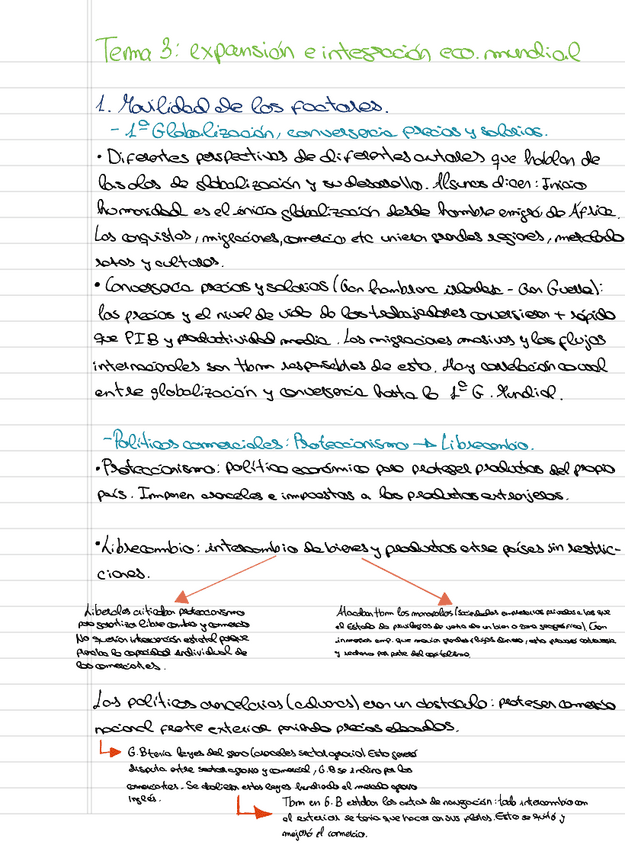 Tema 3: expansión e integración eco. mundial
1. Movilidad de los factores.
- 1ª Globalización, convergencia precios y salarios.
• Diferentes perspectivas de diferentes autores que hablan de
las olas de globalización y su desarrollo. Algunos dicen: Inicio
humanidad es el inicio globalización desde hombre emigró de África.
Las conquistas, migraciones, comercio etc unieron grandes regiones, mezclando
razas y culturas.
• Convergencia precios y salarios (Gran hambruna irlandesa - Gran Guerra):
los precios y el nivel de vida de los trabajadores convergieron + rápido
que PIB y productividad media. Las migraciones masivas y los flujos
internacionales son tbm responsables de esto. Hay correlación causal
entre globalización y convergencia hasta la 1ª G. Mundial.
- Políticas comerciales: Proteccionismo → Librecambio.
• Proteccionismo: política económica para proteger productos del propio
país. Imponen aranceles e impuestos a los productos extranjeros.
• Librecambio: intercambio de bienes y productos entre países sin restric-
ciones.
Liberales criticaban proteccionismo
para garantizar libre cambio y comercio
No querían intervención estatal porque
frenaba la capacidad individual de
los comerciantes.
Atacaban tbm los monopolios (sociedades empresarias privadas a las que
el Estado da privilegios de venta de un bien o zona geográfica). Gran
inmensas emp. que movían grandes flujos dinero, esto provocó
y rechazo por parte del capitalismo.
Las políticas arancelarias (aduanas) eran un obstáculo: protegen comercio
nacional frente exterior poniendo precios elevados.
G.B tenía leyes del grano (aranceles sector agrario). Esto generó
disputa entre sector agrario y comercial, G.B se inclinó por los
comerciantes. Se abolieron estas leyes hundiendo el mercado agrario
inglés.
Tbm en G.B estaban las actas de navegación: todo intercambio con
el exterior se tenía que hacer con sus flotas. Esto se quitó y
mejoró el comercio.